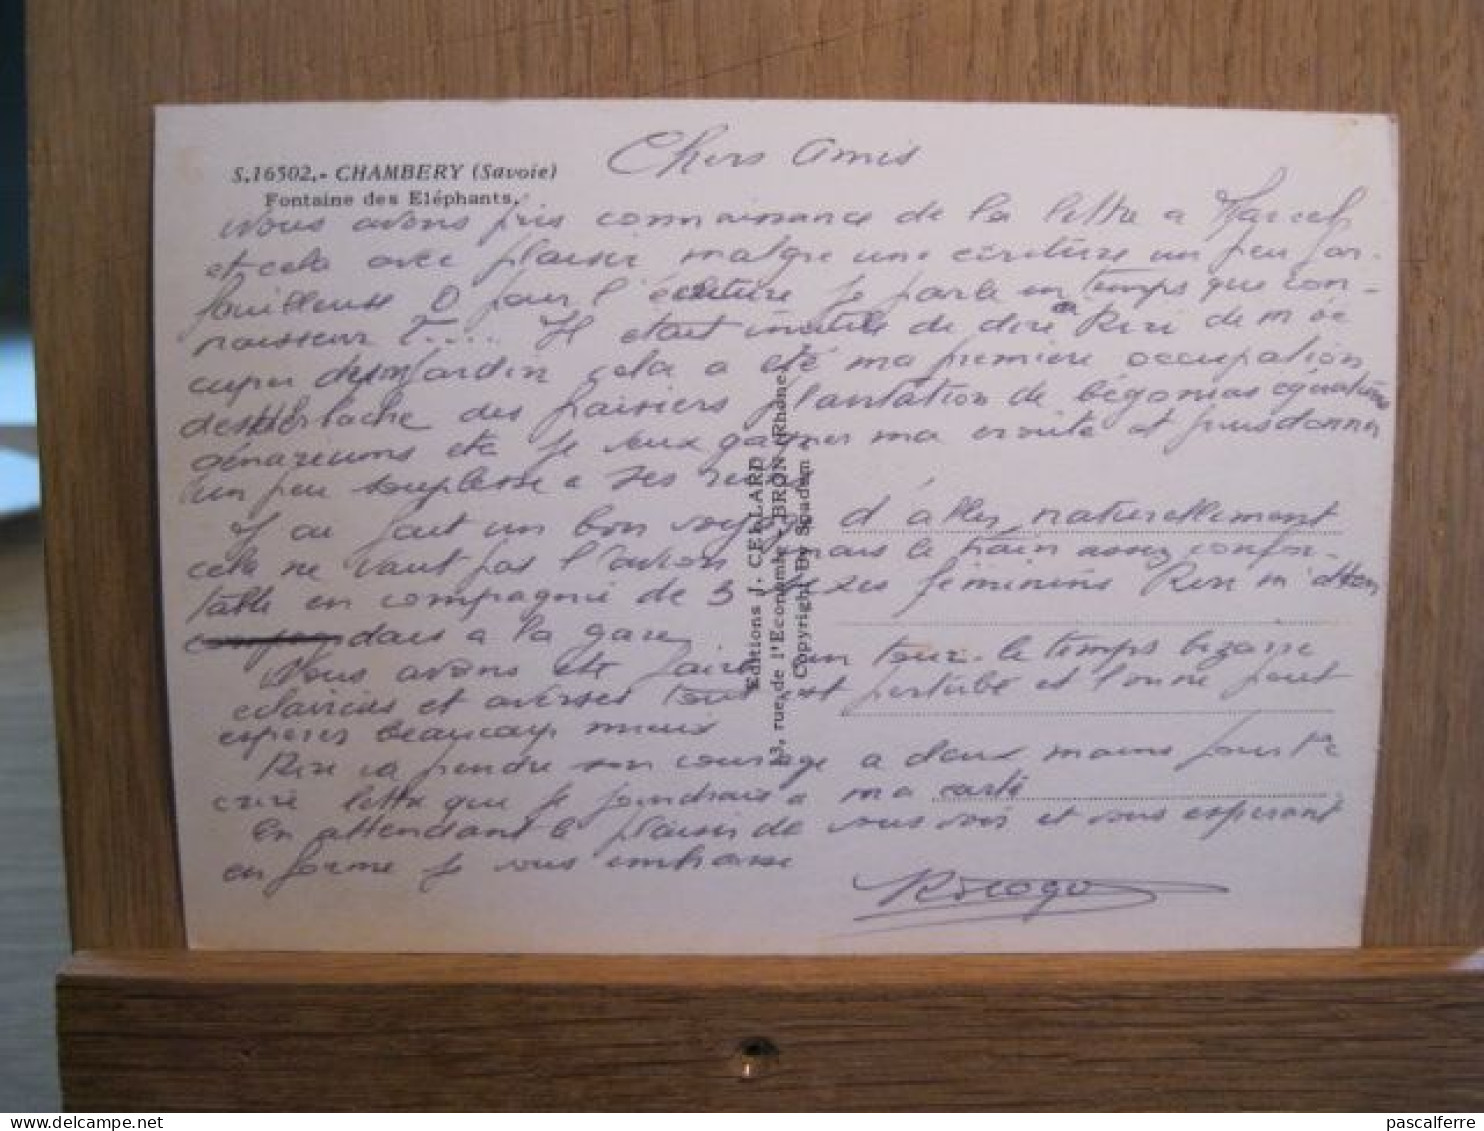 S.16502.- CHAMBERY (Savoie)
Fontaine des Eléphants.
Chers amis
Nous avons pris connaissance de la lettre a Marcel
et cela avec plaisir malgre une écriture un peu far-
fouilleuse pour l'écriture je parle en temps que con-
naisseur T..... Il etait inutile de dire a Rire de m'oc
cuper du jardin cela a été ma premiere occupation
des fraisiers plantation de bégonias
etc je veux gagner ma croute et puis donner
un peu souplesse a ses reins
J'ai fait un bon voyage d'aller, naturellement
cela ne vaut pas l'avion mais le train assez confor-
table en compagnie de 3 sexes féminins m'atten
dais a la gare
Nous avons été faire un tour. le temps bizarre
eclaircies et averses tout est perturbé et l'on ne peut
esperer beaucoup mieux
va prendre son courage a deux mains pour
lettre que je joindrais a ma carte
En attendant le plaisir de vous voir et vous esperant
en forme je vous embrasse
Editions J. CELLARD
13, rue de l'Economie - BRON (Rhône)
Copyright By Scadem
pascalferre